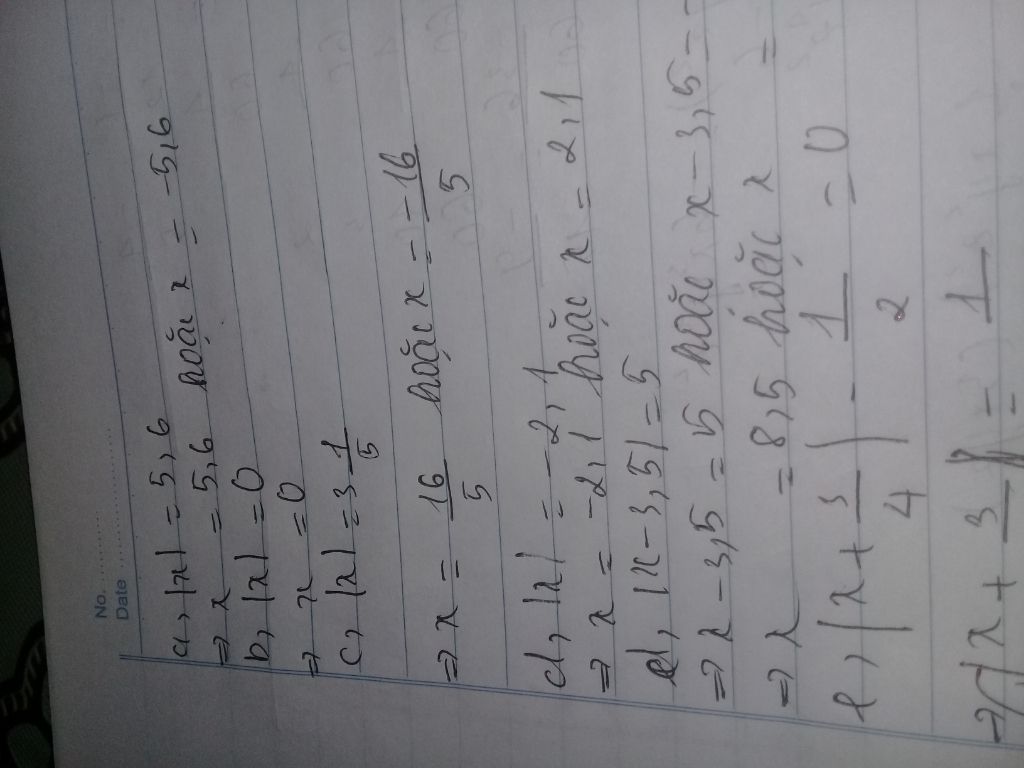 No.
Date
a, |x| = 5,6
=> x = 5,6 hoặc x = -5,6
b, |x| = 0
=> x = 0
c, |x| = 3 1/5
=> x = 16/5 hoặc x = -16/5
d, |x| = -2,1
=> x = -2,1 hoặc x = 2,1
d, |x - 3,5| = 5
=> x - 3,5 = 5 hoặc x - 3,5 =
=> x = 8,5 hoặc x =
e, |x + 3/4| - 1/2 = 0
=> |x + 3 | = 1